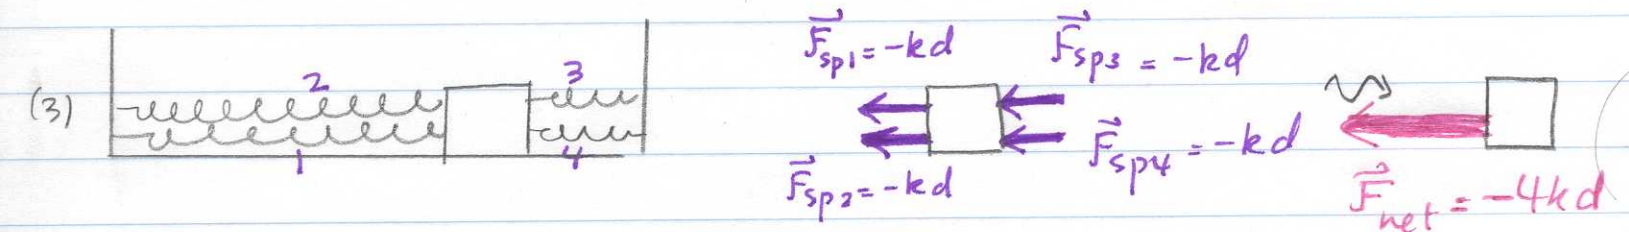 (3)
2
3
1
4
F⃗sp1 = -kd
F⃗sp3 = -kd
F⃗sp2 = -kd
F⃗sp4 = -kd
F⃗net = -4kd